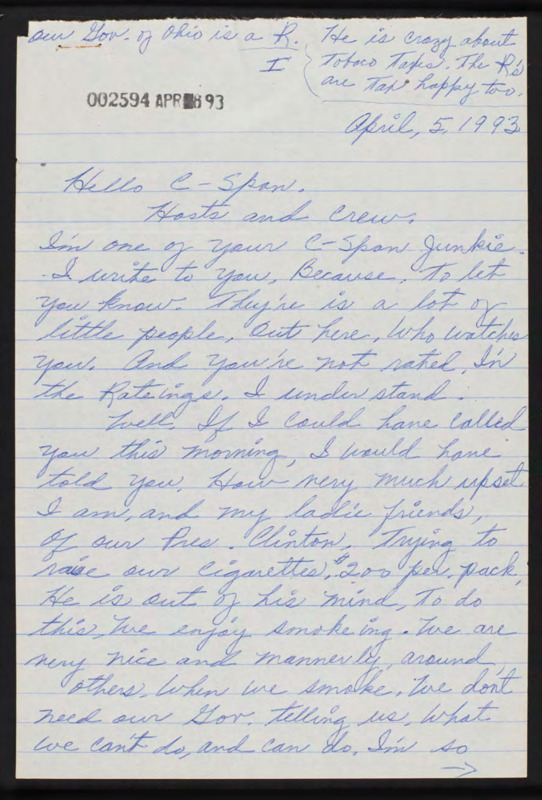 our Gov. of Ohio is a R.
I
He is crazy about
Tobaco Taxes. The R's
are Tax happy too.
002594 APR 8 93
April, 5, 1993
Hello C-Span.
Hosts and Crew.
I'm one of your C-Span Junkie.
I write to you, Because, To let
you know. They're is a lot of
little people, out here, who watches
you. And you're not rated, In
the Rateings. I understand.
Well. If I could have called
you this morning, I would have
told you, How very much upset
I am, and my ladie friends,
Of our Pres. Clinton, Trying to
raise our cigarettes, $2.00 per. pack,
He is out of his mind, To do
this, We enjoy smokeing. We are
very nice and mannerly, around
others, When we smoke. We don't
need our Gov. telling us, what
we can't do, and can do, I'm so